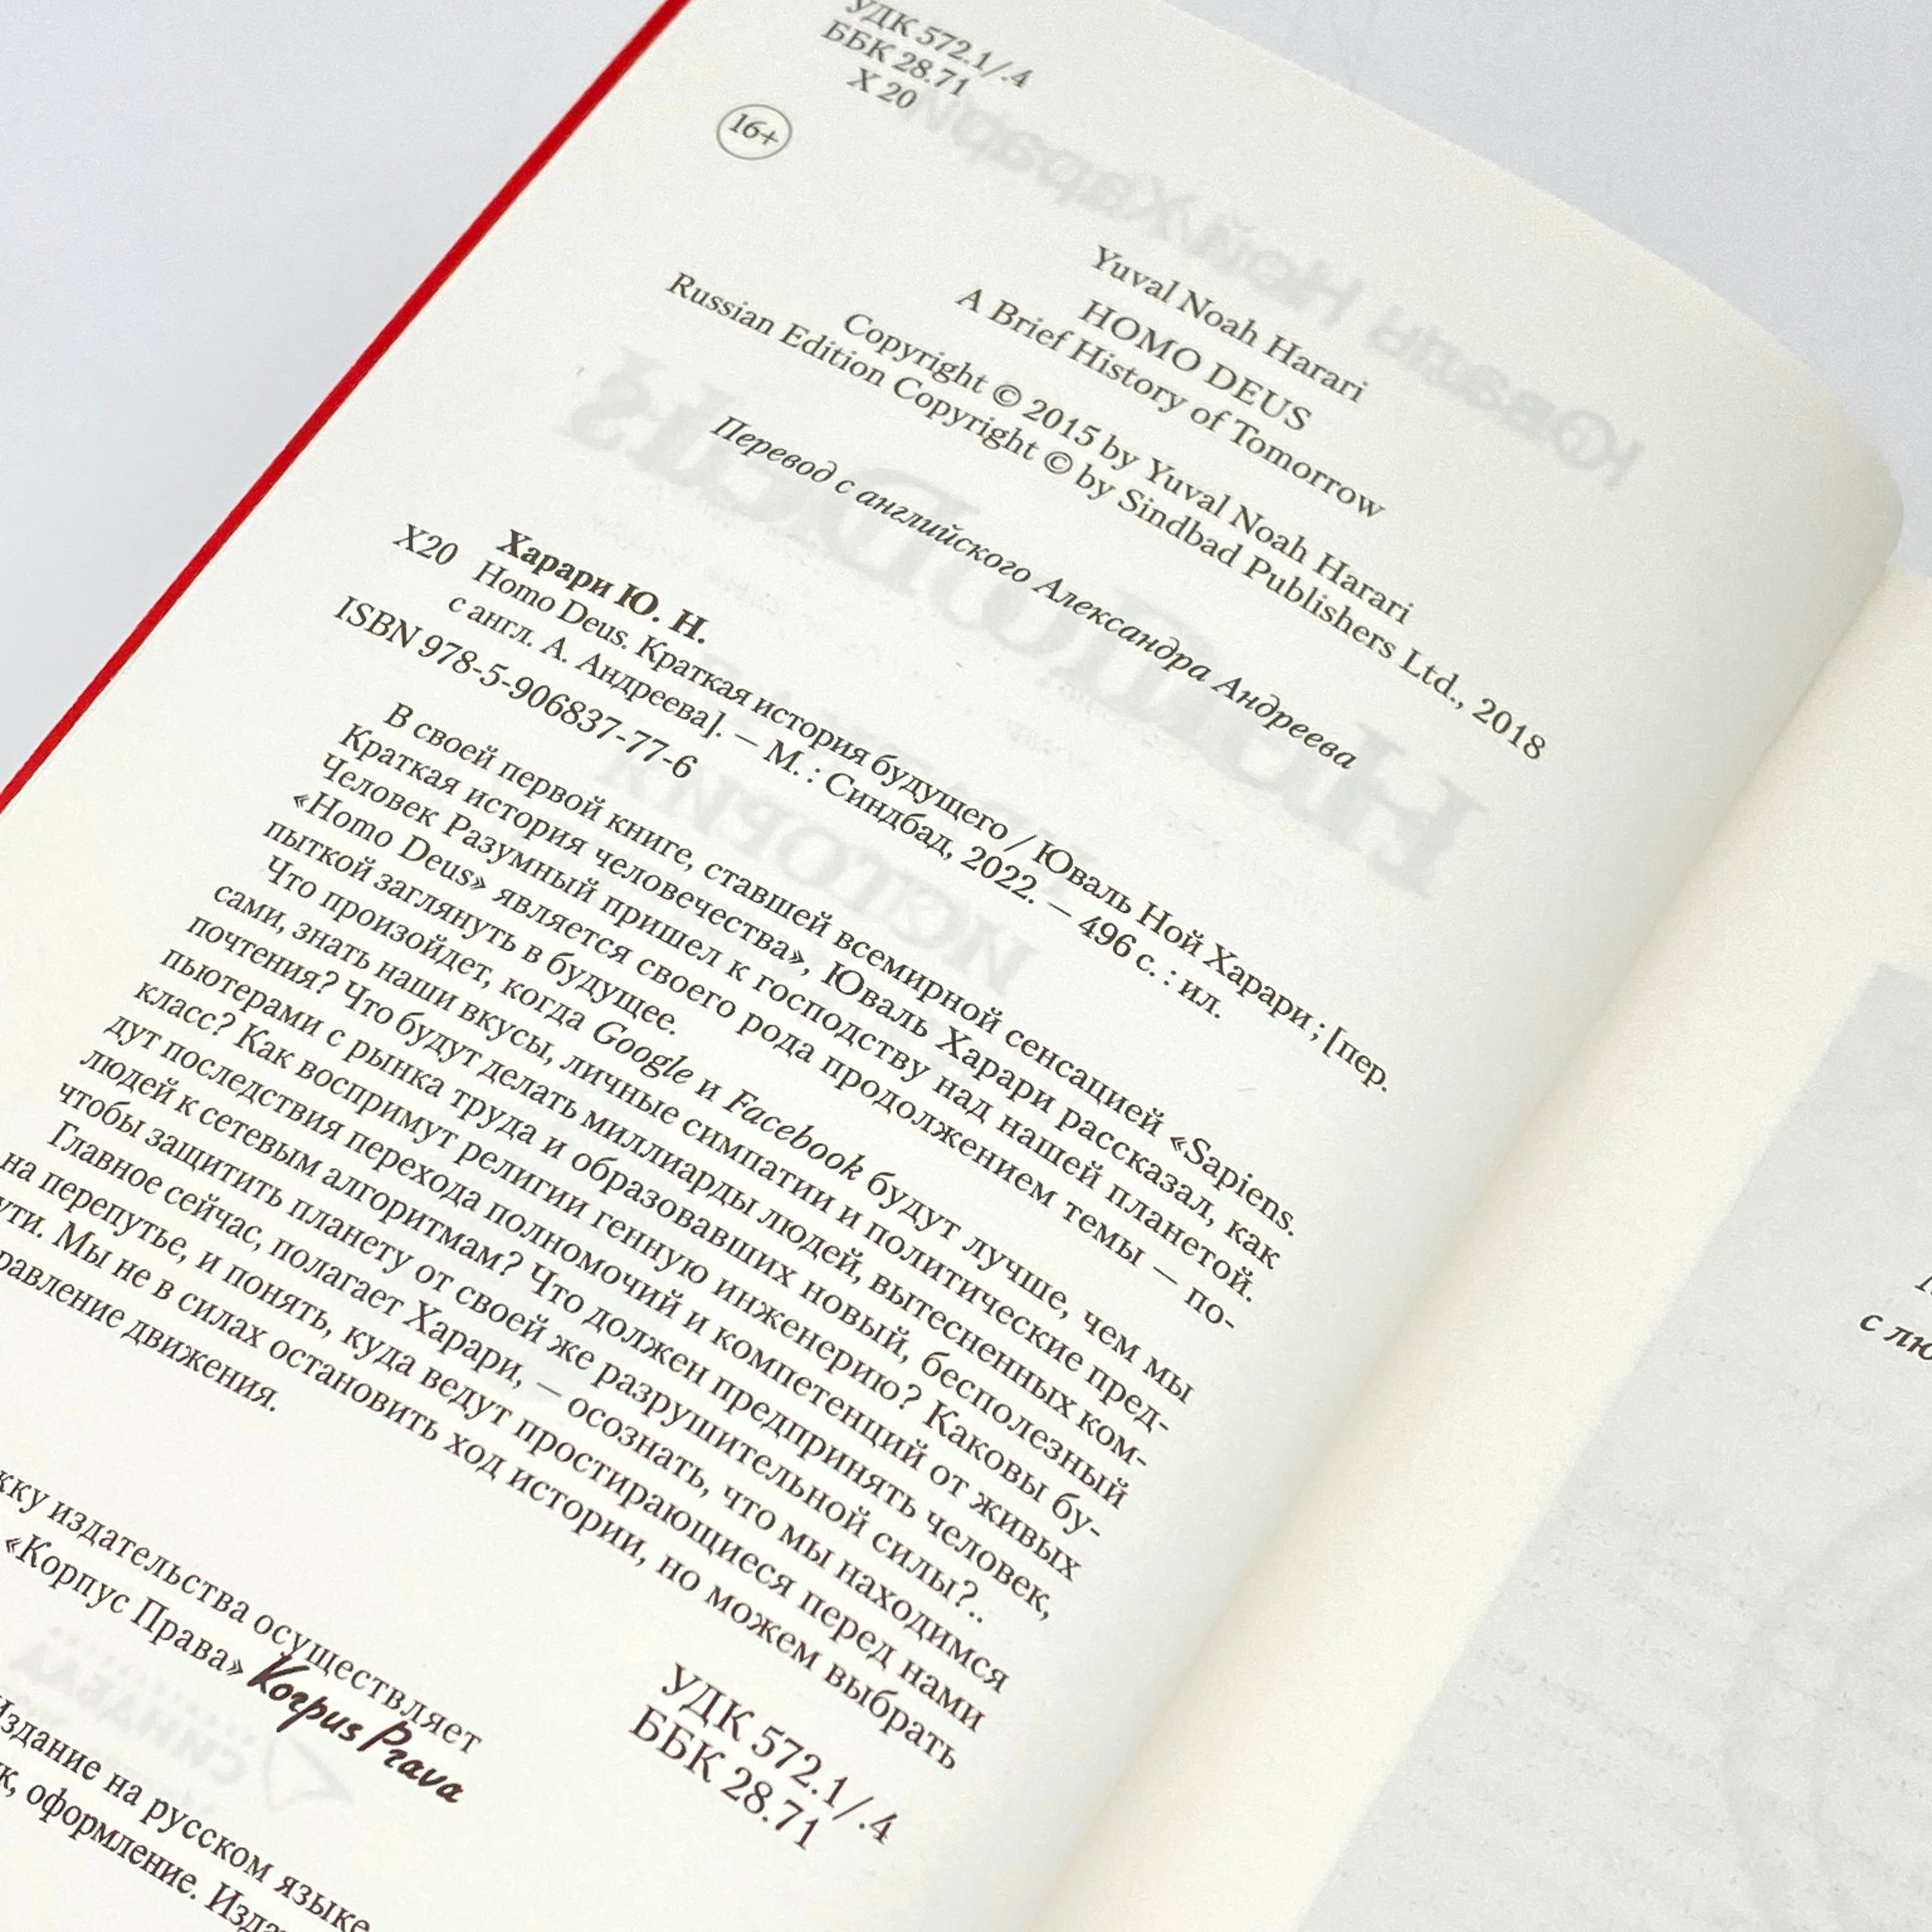 УДК 572.1/.4
ББК 28.71
Х 20
16+
Yuval Noah Harari
HOMO DEUS
A Brief History of Tomorrow
Copyright © 2015 by Yuval Noah Harari
Russian Edition Copyright © by Sindbad Publishers Ltd., 2018
Перевод с английского Александра Андреева
Харари Ю. Н.
Х20 Homo Deus. Краткая история будущего / Юваль Ной Харари ; [пер.
с англ. А. Андреева]. — М. : Синдбад, 2022. — 496 с. : ил.
ISBN 978-5-906837-77-6
В своей первой книге, ставшей всемирной сенсацией «Sapiens.
Краткая история человечества», Юваль Харари рассказал, как
Человек Разумный пришел к господству над нашей планетой.
«Homo Deus» является своего рода продолжением темы — по-
пыткой заглянуть в будущее.
Что произойдет, когда Google и Facebook будут лучше, чем мы
сами, знать наши вкусы, личные симпатии и политические пред-
почтения? Что будут делать миллиарды людей, вытесненных ком-
пьютерами с рынка труда и образовавших новый, бесполезный
класс? Как воспримут религии генную инженерию? Каковы бу-
дут последствия перехода полномочий и компетенций от живых
людей к сетевым алгоритмам? Что должен предпринять человек,
чтобы защитить планету от своей же разрушительной силы?..
Главное сейчас, полагает Харари, — осознать, что мы находимся
на перепутье, и понять, куда ведут простирающиеся перед нами
ути. Мы не в силах остановить ход истории, но можем выбрать
равление движения.
УДК 572.1/.4
ББК 28.71
жку издательства осуществляет
«Корпус Права» Korpus Prava
Издание на русском языке
к, оформление. Изда
с лю